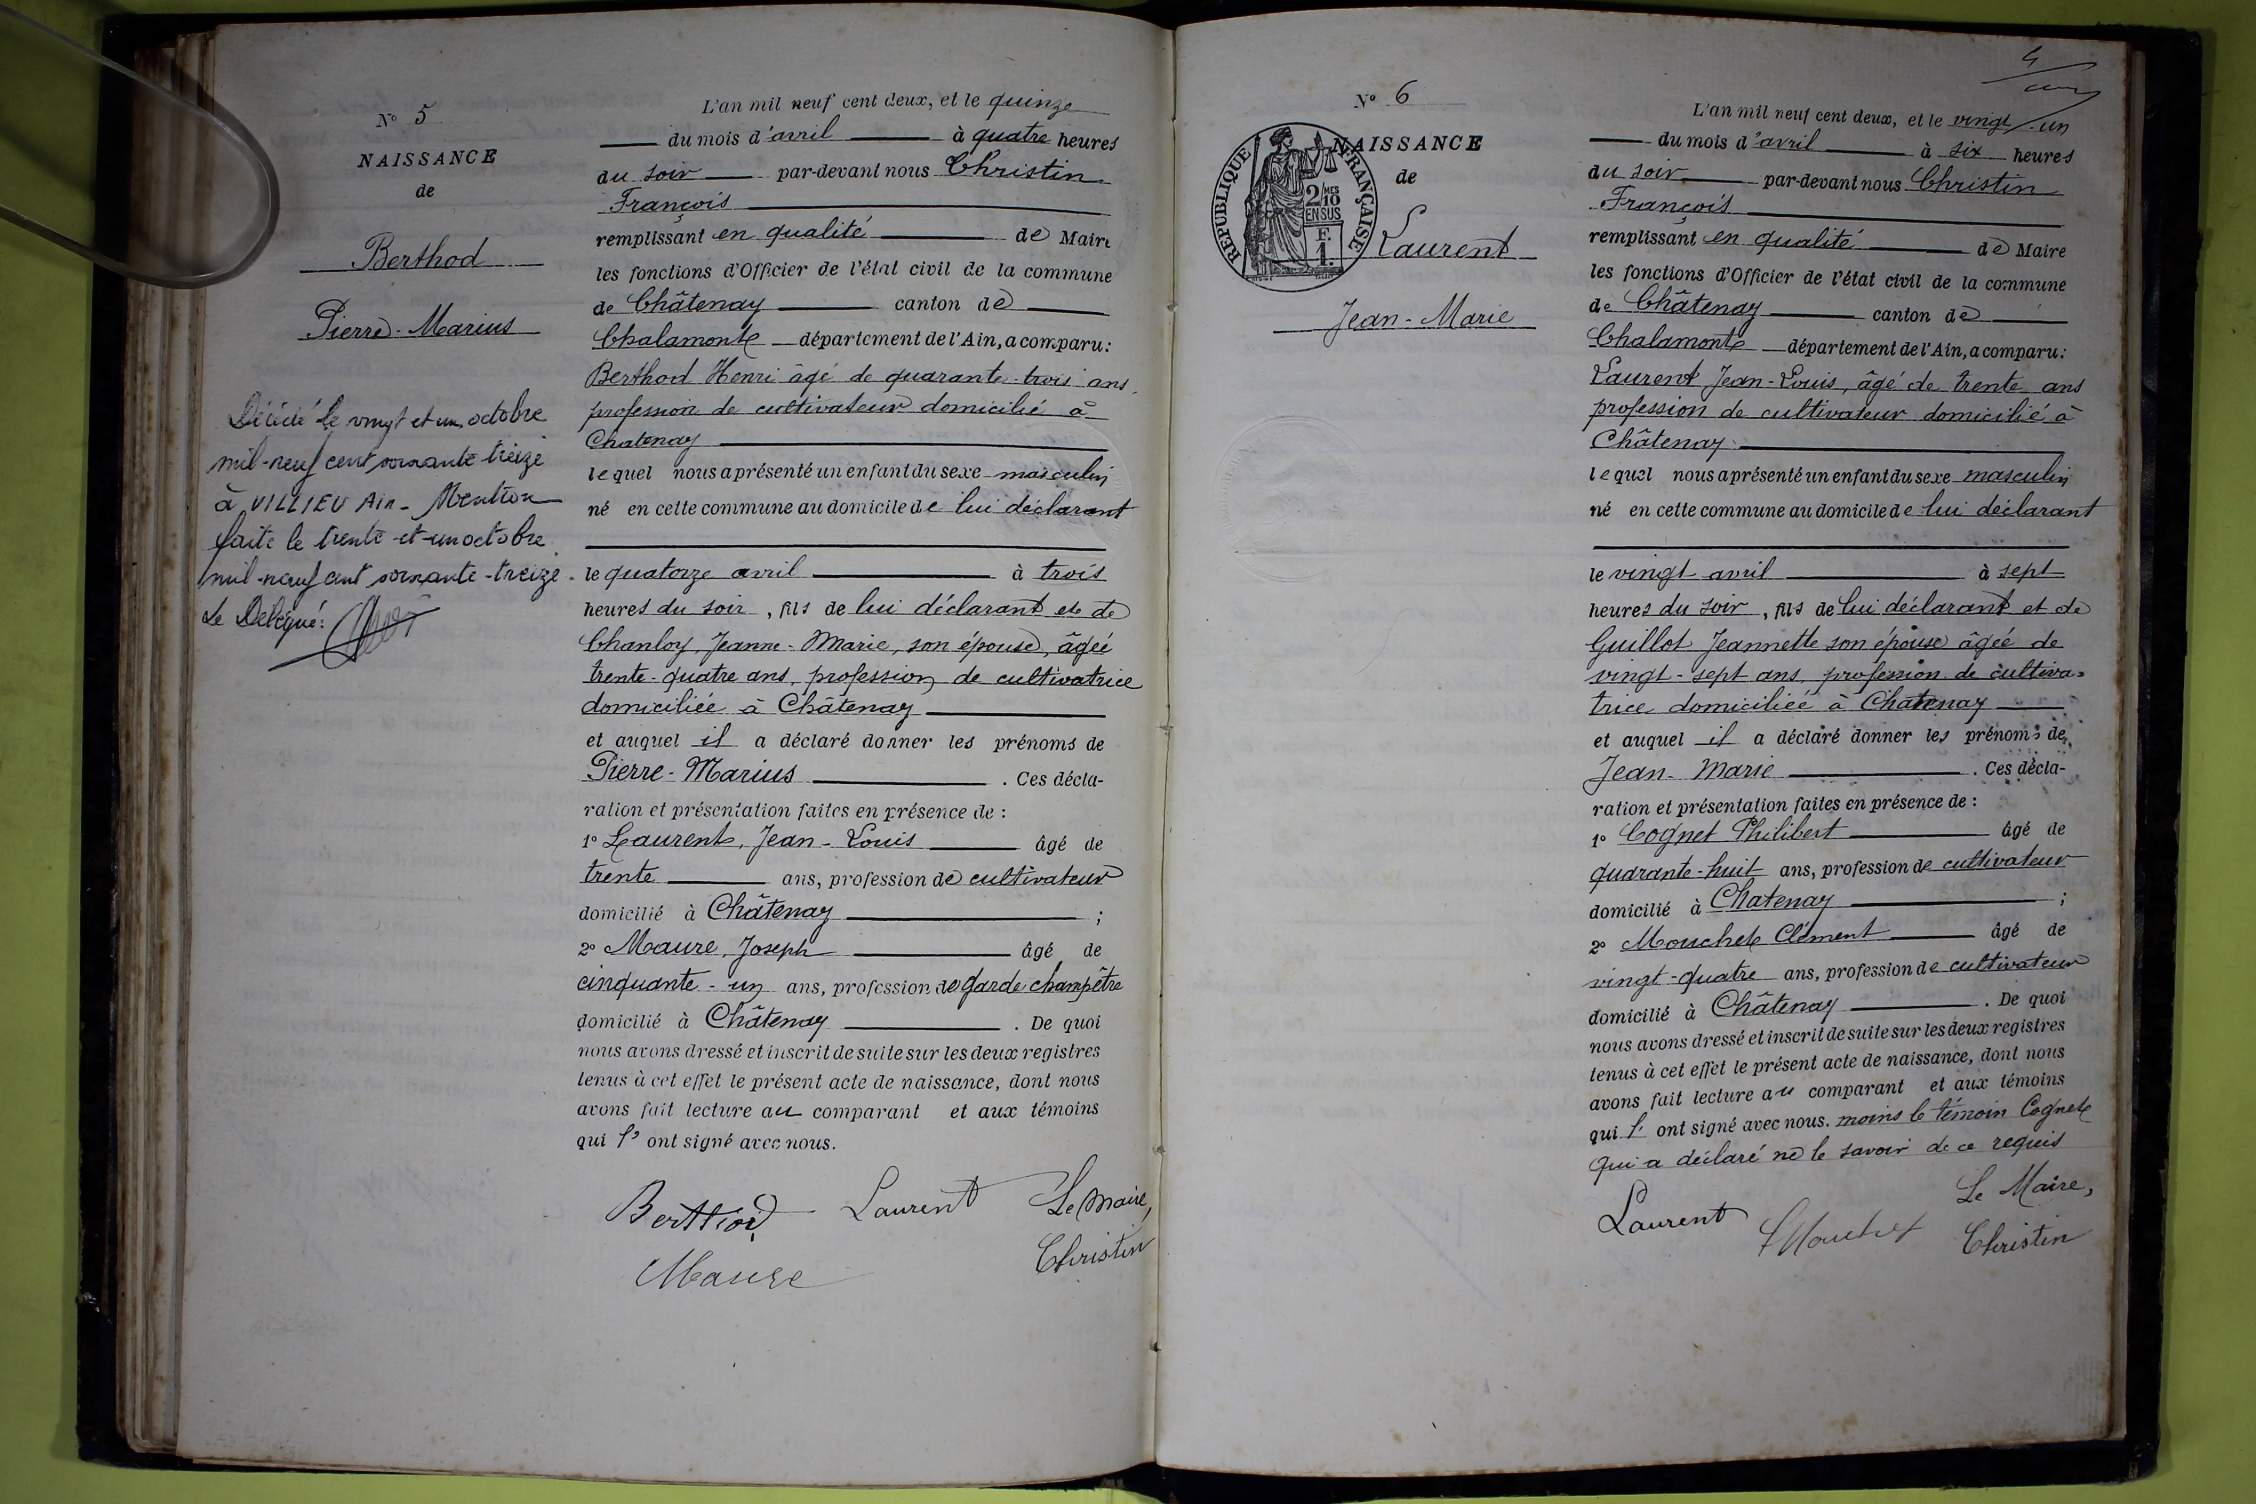 N° 5
NAISSANCE
de
Berthod
Pierre-Marius
Décédé le vingt et un octobre
mil-neuf cent soixante treize
à VILLIEU Ain - Mention
faite le trente-et-un octobre
mil-neuf cent soixante-treize.
Le Délégué:
L'an mil neuf cent deux, et le quinze
du mois d'avril à quatre heures
du soir par-devant nous Christin
François
remplissant en qualité de Maire
les fonctions d'Officier de l'état civil de la commune
de Châtenay canton de
Chalamont département de l'Ain, a comparu:
Berthod Henri âgé de quarante-trois ans,
profession de cultivateur domicilié à
Chatenay
lequel nous a présenté un enfant du sexe masculin
né en cette commune au domicile de lui déclarant
le quatorze avril à trois
heures du soir, fils de lui déclarant et de
Chanloy, Jeanne-Marie, son épouse, âgée
trente-quatre ans, profession de cultivatrice
domiciliée à Châtenay
et auquel il a déclaré donner les prénoms de
Pierre-Marius . Ces décla-
ration et présentation faites en présence de :
1° Laurent, Jean-Louis âgé de
trente ans, profession de cultivateur
domicilié à Châtenay ;
2° Maure, Joseph âgé de
cinquante-un ans, profession de garde champêtre
domicilié à Châtenay . De quoi
nous avons dressé et inscrit de suite sur les deux registres
tenus à cet effet le présent acte de naissance, dont nous
avons fait lecture au comparant et aux témoins
qui l' ont signé avec nous.
Berthod Laurent Le Maire,
Maure Christin
4
N° 6
NAISSANCE
de
Laurent
Jean-Marie
RÉPUBLIQUE FRANÇAISE
2/10 MES
EN SUS
F.
1.
L'an mil neuf cent deux, et le vingt-un
du mois d'avril à six heures
du soir par-devant nous Christin
François
remplissant en qualité de Maire
les fonctions d'Officier de l'état civil de la commune
de Châtenay canton de
Chalamont département de l'Ain, a comparu:
Laurent, Jean-Louis, âgé de trente ans
profession de cultivateur domicilié à
Châtenay
lequel nous a présenté un enfant du sexe masculin
né en cette commune au domicile de lui déclarant
le vingt avril à sept
heures du soir, fils de lui déclarant et de
Guillot Jeannette son épouse âgée de
vingt-sept ans, profession de cultiva=
trice domiciliée à Chatenay
et auquel il a déclaré donner les prénoms de
Jean-Marie . Ces décla-
ration et présentation faites en présence de :
1° Cognet Philibert âgé de
quarante-huit ans, profession de cultivateur
domicilié à Chatenay ;
2° Mouchet Clément âgé de
vingt-quatre ans, profession de cultivateur
domicilié à Châtenay . De quoi
nous avons dressé et inscrit de suite sur les deux registres
tenus à cet effet le présent acte de naissance, dont nous
avons fait lecture au comparant et aux témoins
qui l' ont signé avec nous. moins le témoin Cognet
qui a déclaré ne le savoir de ce requis
Laurent Mouchet Le Maire,
Christin